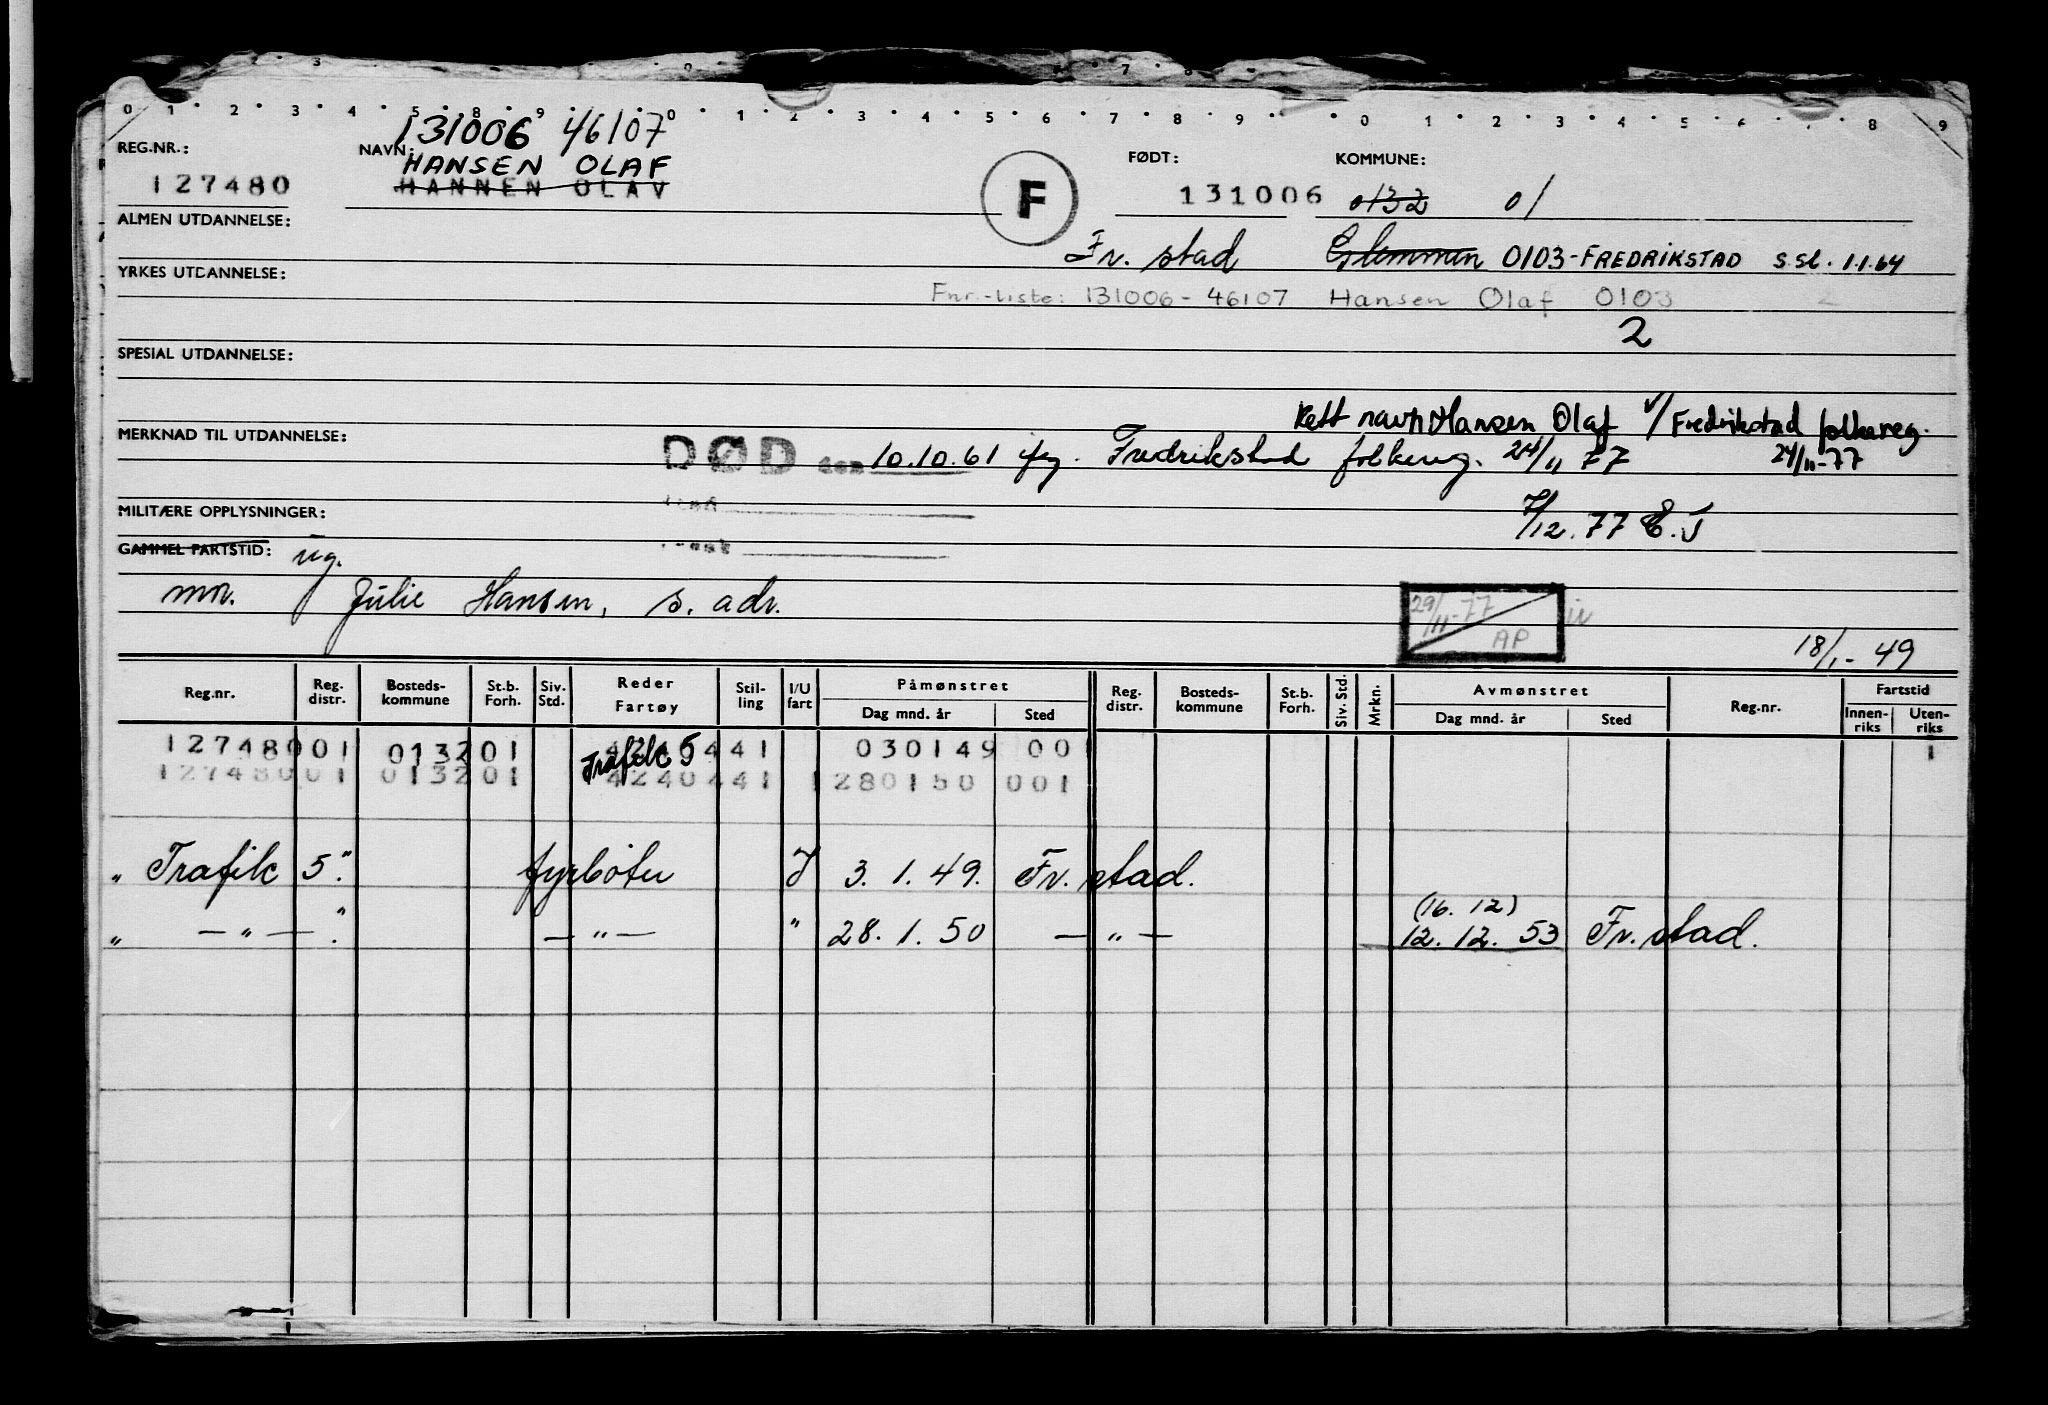 0 1 2 3 4 5 8 9 0 1 2 3 4 5 6 7 8 9 0 1 2 3 4 5 6 7 8 9
131006 46107
REG.NR.: NAVN: HANSEN OLAF FØDT: KOMMUNE:
127480 HANNEN OLAV F 131006 0132 01
ALMEN UTDANNELSE:
Fr. stad Glemmen 0103-FREDRIKSTAD s.sl. 1.1.64
YRKES UTDANNELSE:
Fnr.-liste: 131006-46107 Hansen Olaf 0103 2
2
SPESIAL UTDANNELSE:
Rett navn Hansen Olaf v/Fredrikstad folkereg.
MERKNAD TIL UTDANNELSE:
DØD den 10.10.61 ifg. Fredrikstad folkereg. 24/11 77 24/11-77
MILITÆRE OPPLYSNINGER:
7/12.77 E.J
GAMMEL FARTSTID: ug.
mor. Julie Hansen, s. adr.
29/11-77 AP
18/1-49
Reg.nr. Reg. distr. Bosteds-kommune St.b. Forh. Siv. Std. Reder Fartøy Stil-ling I/U fart Påmønstret Dag mnd. år Sted Reg. distr. Bosteds-kommune St.b. Forh. Siv. Std. Mrkn. Avmønstret Dag mnd. år Sted Reg.nr. Fartstid Innen-riks Uten-riks
127480 01 0132 01 Trafik 5 441 030149 001 1
127480 01 0132 01 4240441 1 280150 001
„ Trafik 5." fyrbøter I 3. 1. 49. Fr. stad.
(16. 12)
„ — " — ." — " — " 28. 1. 50 — " — 12. 12. 53 Fr. stad.